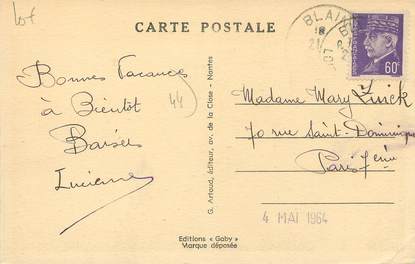 lot
CARTE POSTALE
BLAIN
18
21
60ᶜ
Bonnes Vacances
à Bientôt
Baisers
Lucienne
44
G. Artaud, éditeur, av. de la Close - Nantes
Madame Mary
70 rue Saint-Dominique
Paris 7ème
4 MAI 1964
Editions « Gaby »
Marque déposée